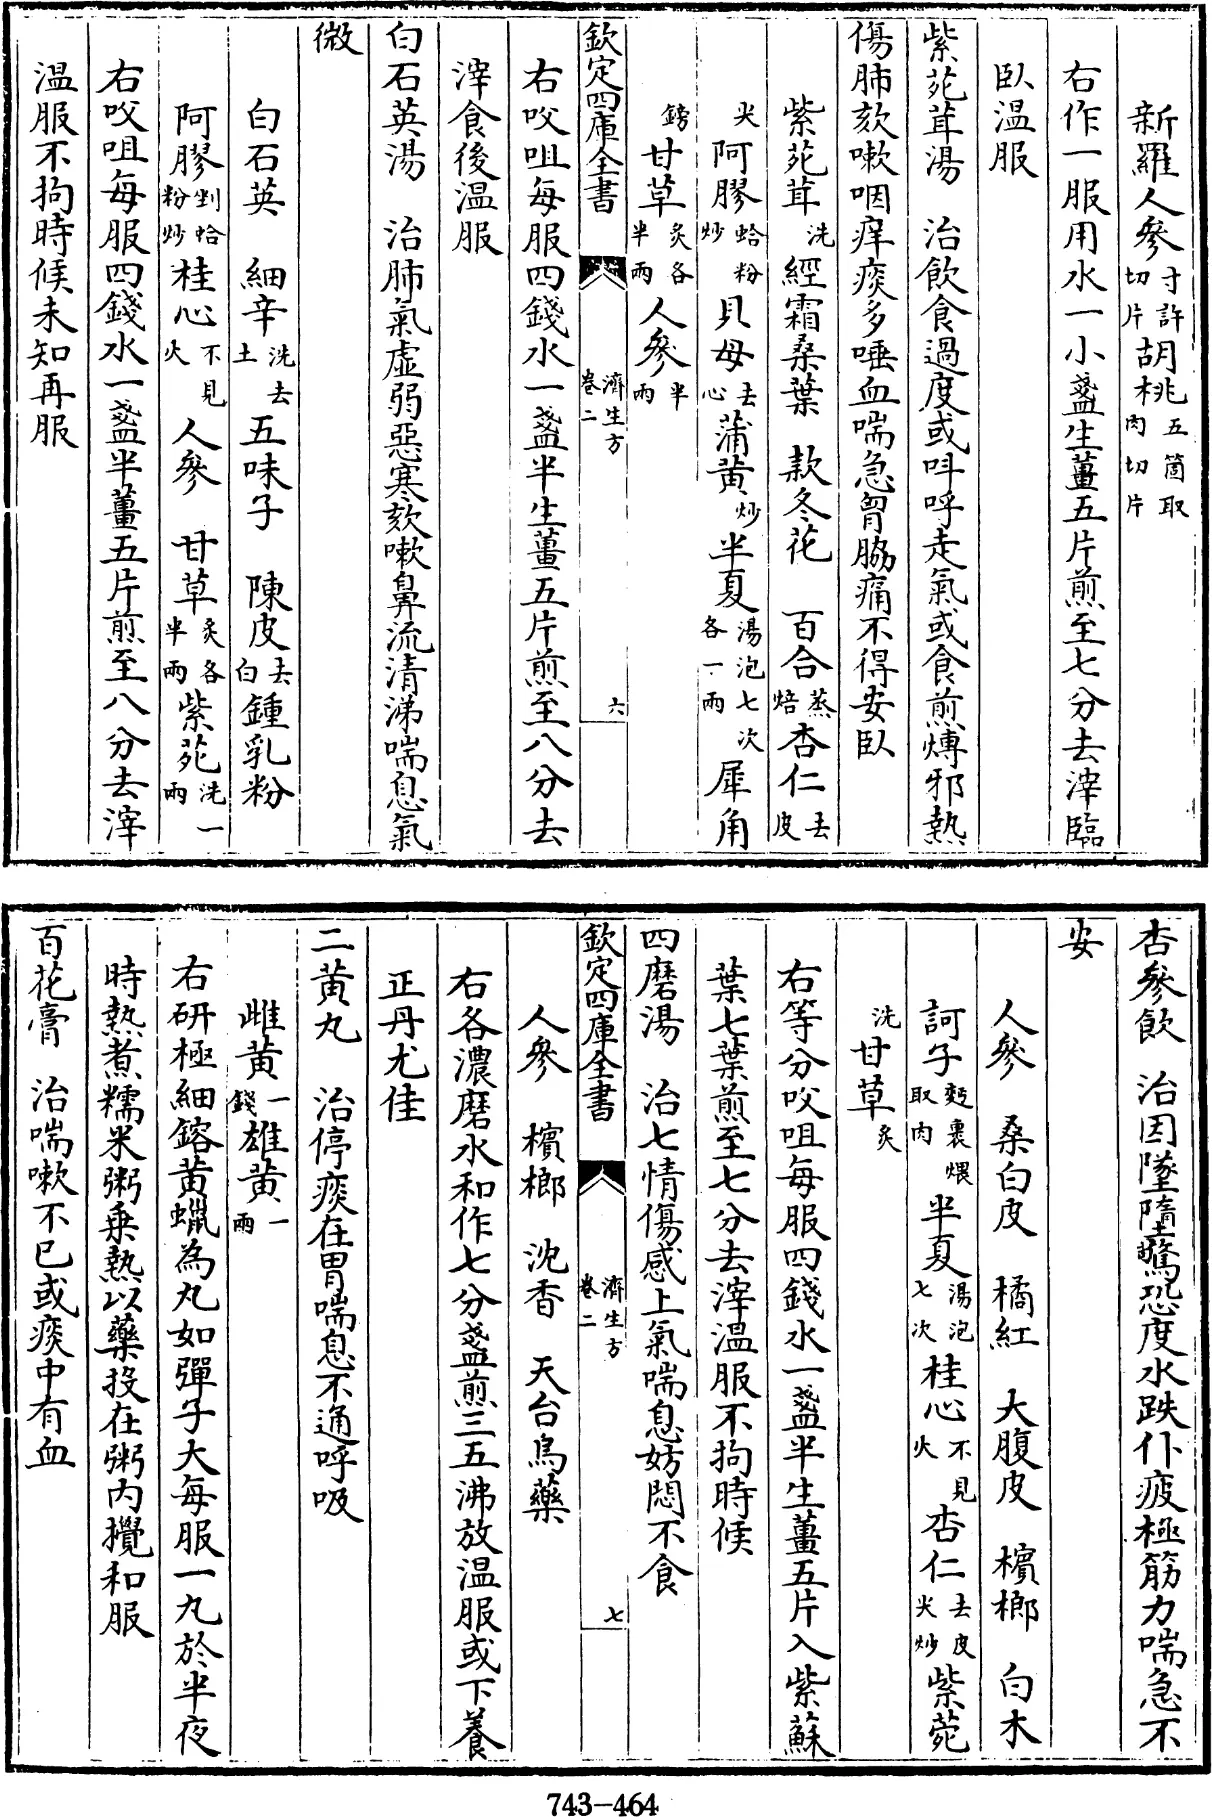 新羅人參寸許切片胡桃五箇取肉切片
右作一服用水一小盞生薑五片煎至七分去滓臨
臥溫服
紫苑茸湯　治飲食過度或呌呼走氣或食煎煿邪熱
傷肺欬嗽咽痒痰多唾血喘急胷脇痛不得安臥
紫苑茸洗經霜桑葉　款冬花　百合蒸焙杏仁去皮
尖阿膠蛤粉炒貝母去心蒲黃炒半夏湯泡七次各一兩犀角
鎊甘草炙各半兩人參半兩
欽定四庫全書　濟生方卷二　六
右㕮咀每服四錢水一盞半生薑五片煎至八分去
滓食後溫服
白石英湯　治肺氣虛弱惡寒欬嗽鼻流清涕喘息氣
微
白石英　細辛洗去土五味子　陳皮去白鍾乳粉
阿膠剉蛤粉炒桂心不見火人參　甘草炙各半兩紫苑洗一兩
右㕮咀每服四錢水一盞半薑五片煎至八分去滓
溫服不拘時候未知再服
杏參飲　治因墜墮驚恐度水跌仆疲極筋力喘急不
安
人參　桑白皮　橘紅　大腹皮　檳榔　白木
訶子麪裏煨取肉半夏湯泡七次桂心不見火杏仁去皮尖炒紫菀
洗甘草炙
右等分㕮咀每服四錢水一盞半生薑五片入紫蘇
葉七葉煎至七分去滓溫服不拘時候
四磨湯　治七情傷感上氣喘息妨悶不食
欽定四庫全書　濟生方卷二　七
人參　檳榔　沈香　天台烏藥
右各濃磨水和作七分盞煎三五沸放溫服或下養
正丹尤佳
二黃丸　治停痰在胃喘息不通呼吸
雌黃一錢雄黃一兩
右研極細鎔黃蠟為丸如彈子大每服一丸於半夜
時熱煮糯米粥乘熱以藥投在粥內攪和服
百花膏　治喘嗽不已或痰中有血
743-464